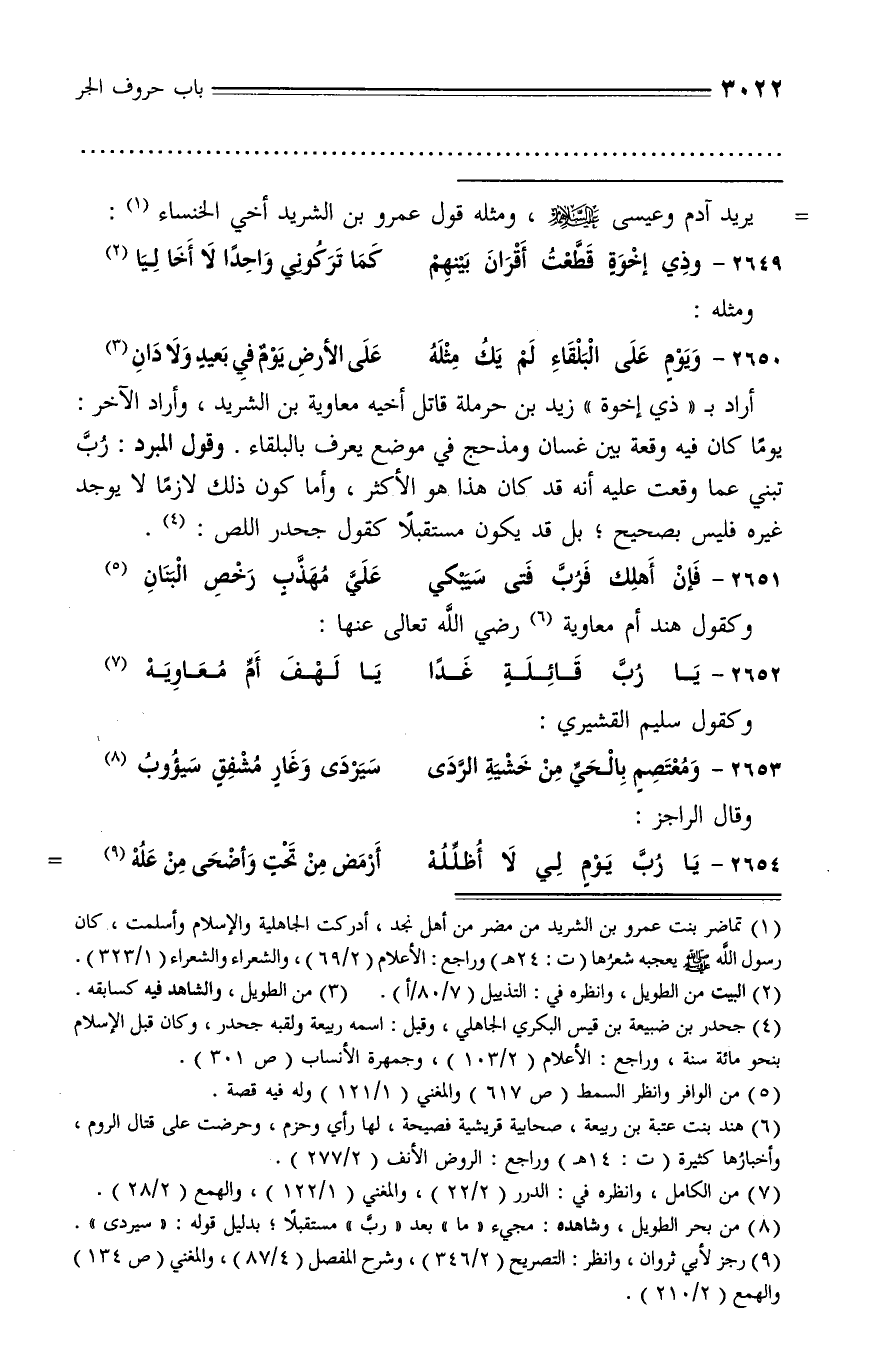 ٣٠٢٢ باب حروف الجر
= يريد آدم وعيسى عليهما السلام ، ومثله قول عمرو بن الشريد أخي الخنساء (١) :
٢٦٤٩ - وذِي إخْوَةٍ قَطَّعْتُ أَقْرَانَ بَيْنهِمْ كَمَا تَرَكُونِي وَاحِدًا لَا أَخَا لِيَا (٢)
ومثله :
٢٦٥٠ - وَيَوْمٍ عَلَى الْبَلْقَاءِ لَمْ يَكُ مِثْلَهُ عَلَى الأرضِ يَوْمٌ فِي بَعيدٍ وَلَا دَانِ (٣)
أراد بـ « ذي إخوة » زيد بن حرملة قاتل أخيه معاوية بن الشريد ، وأراد الآخر :
يومًا كان فيه وقعة بين غسان ومذحج في موضع يعرف بالبلقاء . وقول المبرد : رُبَّ
تبني عما وقعت عليه أنه قد كان هذا هو الأكثر ، وأما كون ذلك لازمًا لا يوجد
غيره فليس بصحيح ؛ بل قد يكون مستقبلًا كقول جحدر اللص : (٤) .
٢٦٥١ - فَإنْ أَهلِك فَرُبَّ فَتى سَيَبْكي عَلَيَّ مُهَذَّبٍ رَخْصِ الْبَنَانِ (٥)
وكقول هند أم معاوية (٦) رضي اللَّه تعالى عنها :
٢٦٥٢ - يَـا رُبَّ قَـائِـلَـةٍ غَـدًا يَـا لَـهْـفَ أُمِّ مُـعَـاوِيَـهْ (٧)
وكقول سليم القشيري :
٢٦٥٣ - وَمُعْتَصِمٍ بِالْحَيِّ مِنْ خَشْيَةِ الرَّدَى سَيَرْدَى وَغَارٍ مُشْفِقٍ سَيؤُوبُ (٨)
وقال الراجز :
٢٦٥٤ - يَا رُبَّ يَوْمٍ لِي لَا أُظَلِّلُهْ أَرْمَض مِنْ تَحْتِ وَأضْحَى مِنْ عَلُهْ (٩) =
(١) تماضر بنت عمرو بن الشريد من مضر من أهل نجد ، أدركت الجاهلية والإسلام وأسلمت ، كان
رسول اللَّه ﷺ يعجبه شعرُها ( ت : ٢٤هـ ) وراجع : الأعلام ( ٦٩/٢ ) ، والشعراء والشعراء ( ٣٢٣/١ ) .
(٢) البيت من الطويل ، وانظره في : التذييل ( ٨٠/٧/أ ) . (٣) من الطويل ، والشاهد فيه كسابقه .
(٤) جحدر بن ضبيعة بن قيس البكري الجاهلي ، وقيل : اسمه ربيعة ولقبه جحدر ، وكان قبل الإسلام
بنحو مائة سنة ، وراجع : الأعلام ( ١٠٣/٢ ) ، وجمهرة الأنساب ( ص ٣٠١ ) .
(٥) من الوافر وانظر السمط ( ص ٦١٧ ) والمغني ( ١٢١/١ ) وله فيه قصة .
(٦) هند بنت عتبة بن ربيعة ، صحابية قريشية فصيحة ، لها رأي وحزم ، وحرضت على قتال الروم ،
وأخبارُها كثيرة ( ت : ١٤هـ ) وراجع : الروض الأنف ( ٢٧٧/٢ ) .
(٧) من الكامل ، وانظره في : الدرر ( ٢٢/٢ ) ، والمغني ( ١٢٢/١ ) ، والهمع ( ٢٨/٢ ) .
(٨) من بحر الطويل ، وشاهده : مجيء « ما » بعد « ربَّ » مستقبلًا ؛ بدليل قوله : « سيردى » .
(٩) رجز لأبي ثروان ، وانظر : التصريح ( ٣٤٦/٢ ) ، وشرح المفصل ( ٨٧/٤ ) ، والمغني ( ص ١٣٤ )
والهمع ( ٢١٠/٢ ) .